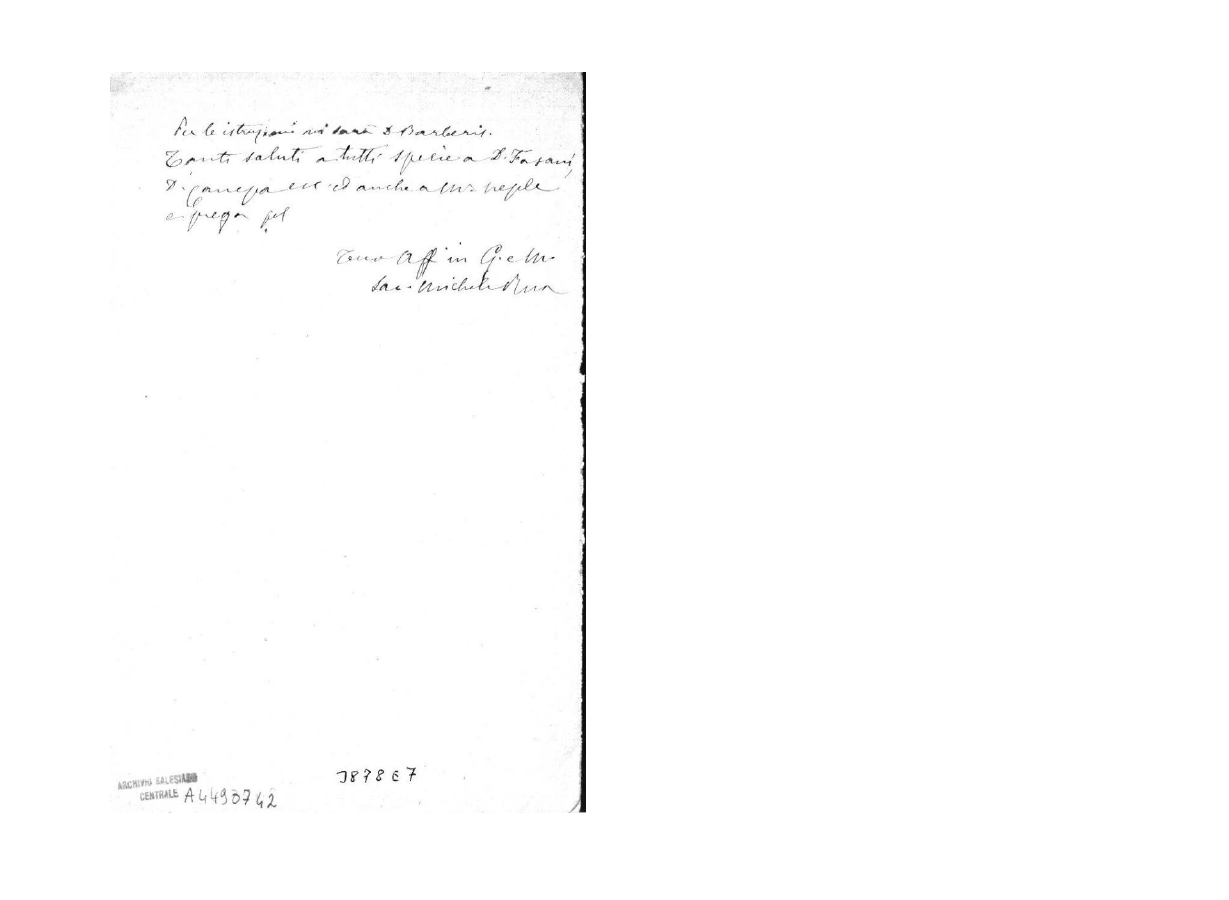 Per le istruzioni vi sarà D Barberis.
Tanti saluti a tutti specie a D. Fasani,
D. Canepa ecc. ed anche a Mr
e prega pel
Tuo Aff in G. e M.
Sac. Michele Rua
ARCHIVIO SALESIANO
CENTRALE A4490742
3878E7